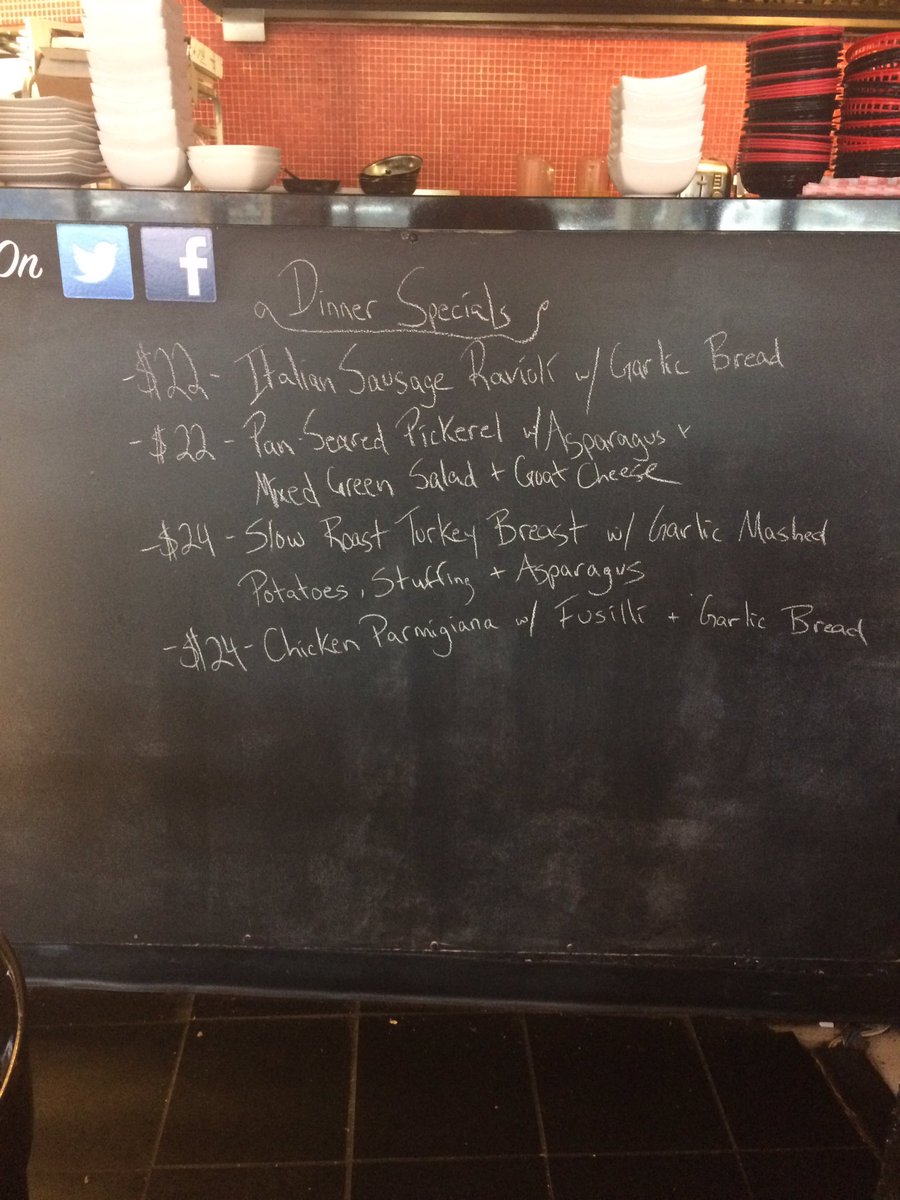 On
f
Dinner Specials
-$22- Italian Sausage Ravioli w/ Garlic Bread
-$22- Pan-Seared Pickerel w/ Asparagus +
Mixed Green Salad + Goat Cheese
-$24- Slow Roast Turkey Breast w/ Garlic Mashed
Potatoes, Stuffing + Asparagus
-$24- Chicken Parmigiana w/ Fusilli + Garlic Bread